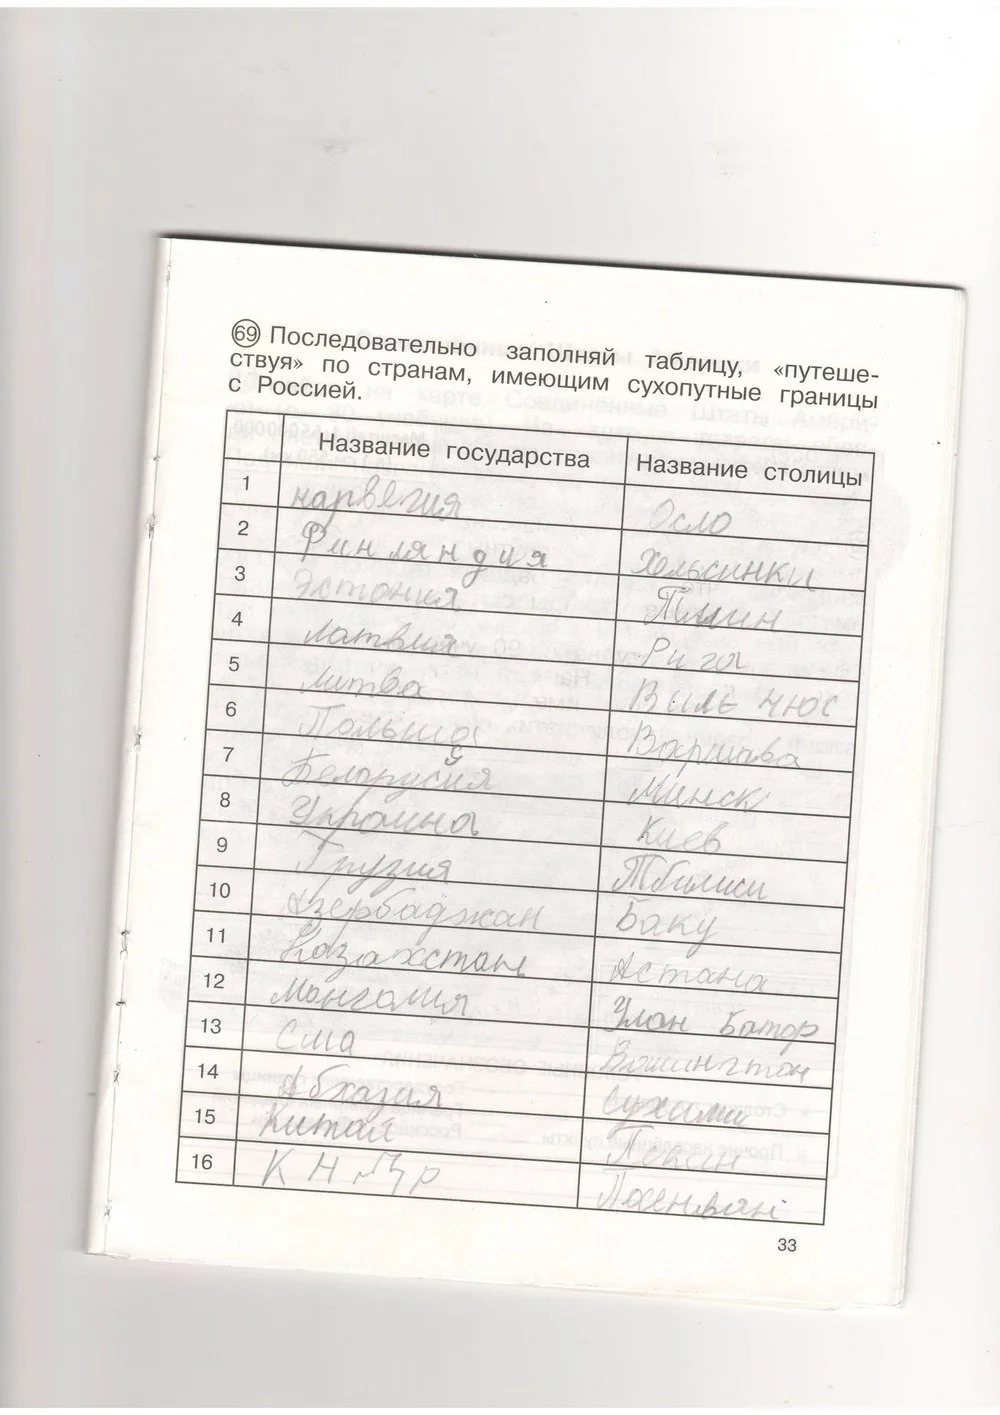 69 Последовательно заполняй таблицу, «путеше-
ствуя» по странам, имеющим сухопутные границы
с Россией.
Название государства Название столицы
1 нарвегия Осло
2 Финляндия Хельсинки
3 Эстония Талин
4 Латвия Рига
5 Литва Вильнюс
6 Польша Варшава
7 Беларусия Минск
8 Украина Киев
9 Грузия Тбилиси
10 Азербаджан Баку
11 Казахстан Астана
12 Монголия Улан Батор
13 Сша Вашингтон
14 Абхазия Сухими
15 Китай Пекин
16 КНДР Пхеньян
33